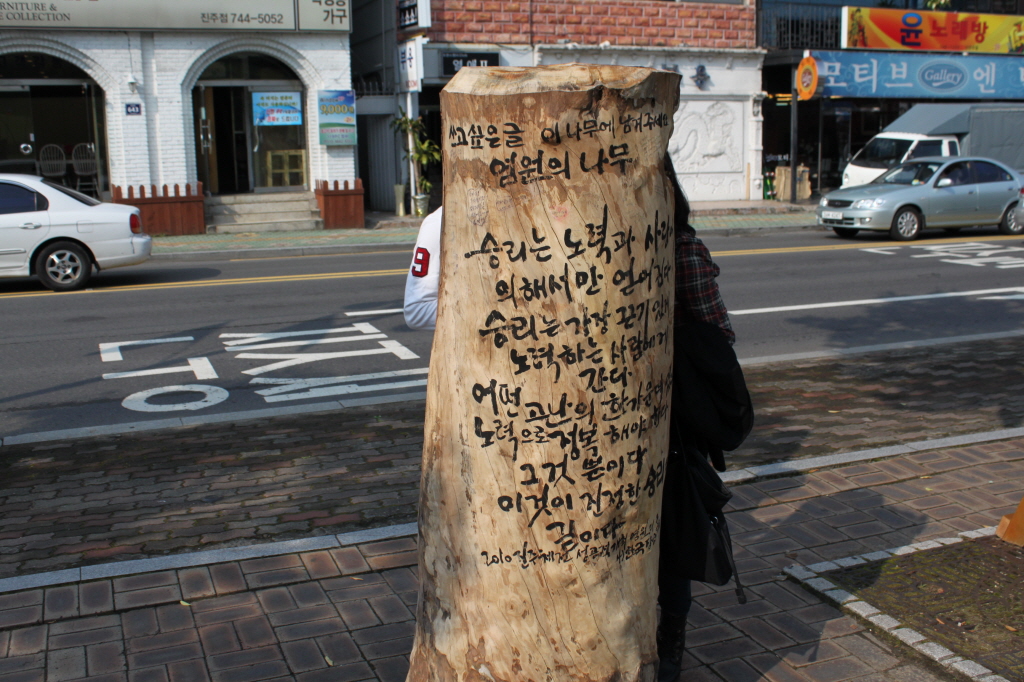 FURNITURE &
COLLECTION
진주점 744-5052
가구
643
윤 노래방
모티브 Gallery 엔
쓰고싶은글 이 나무에 남겨주세요
염원의 나무
승리는 노력과
의해서만 얻어진다
승리는 가장 끈기 있게
노력하는 사람에게
간다
어떤 고난의 한가운데
노력으로 정복 해야
그것 뿐이다
이것이 진정한 승리
길이다
2010
9